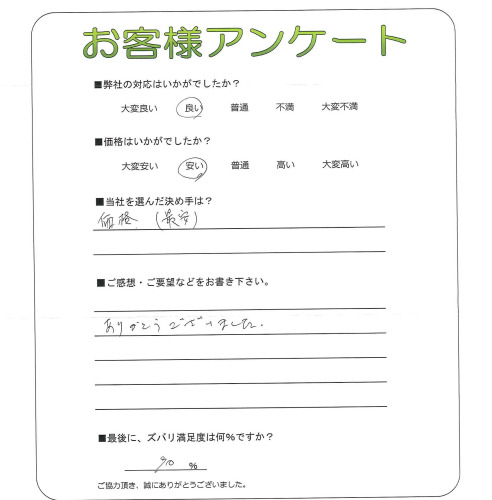 お客様アンケート
■弊社の対応はいかがでしたか？
大変良い 良い 普通 不満 大変不満
■価格はいかがでしたか？
大変安い 安い 普通 高い 大変高い
■当社を選んだ決め手は？
価格 (最安)
■ご感想・ご要望などをお書き下さい。
ありがとうございました.
■最後に、ズバリ満足度は何％ですか？
90 ％
ご協力頂き、誠にありがとうございました。